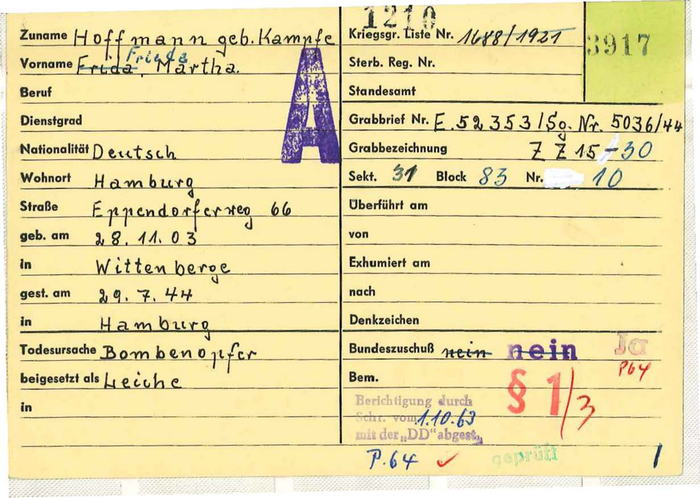 1210
3917
Zuname Hoffmann geb. Kampfe
Vorname Frida, Frieda Martha.
Beruf
Dienstgrad
Nationalität Deutsch
Wohnort Hamburg
Straße Eppendorferweg 66
geb. am 28.11.03
in Wittenberge
gest. am 29.7.44
in Hamburg
Todesursache Bombenopfer
beigesetzt als Leiche
in
A
Kriegsgr. Liste Nr. 1688/1921
Sterb. Reg. Nr.
Standesamt
Grabbrief Nr. E. 52353/So. Nr. 5036/44
Grabbezeichnung Z Z 15-30
Sekt. 31 Block 83 Nr. 10
Überführt am
von
Exhumiert am
nach
Denkzeichen
Bundeszuschuß nein nein Ja
P64
Bem. § 1/3
Berichtigung durch
Schr. vom 1.10.63
mit der „DD" abgest.
P.64 geprüft 1